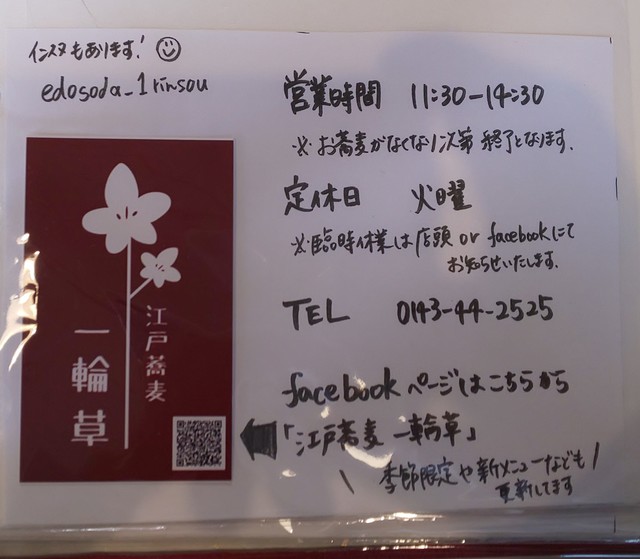 インスタもあります!
edosoda_1rinsou
営業時間 11:30-14:30
※お蕎麦がなくなり次第終了となります.
定休日 火曜
※臨時休業は店頭 or facebookにて
お知らせいたします.
TEL 0143-44-2525
facebookページはこちらから
「江戸蕎麦 一輪草」
\ 季節限定や新メニューなども /
更新してます
江戸蕎麦
一輪草